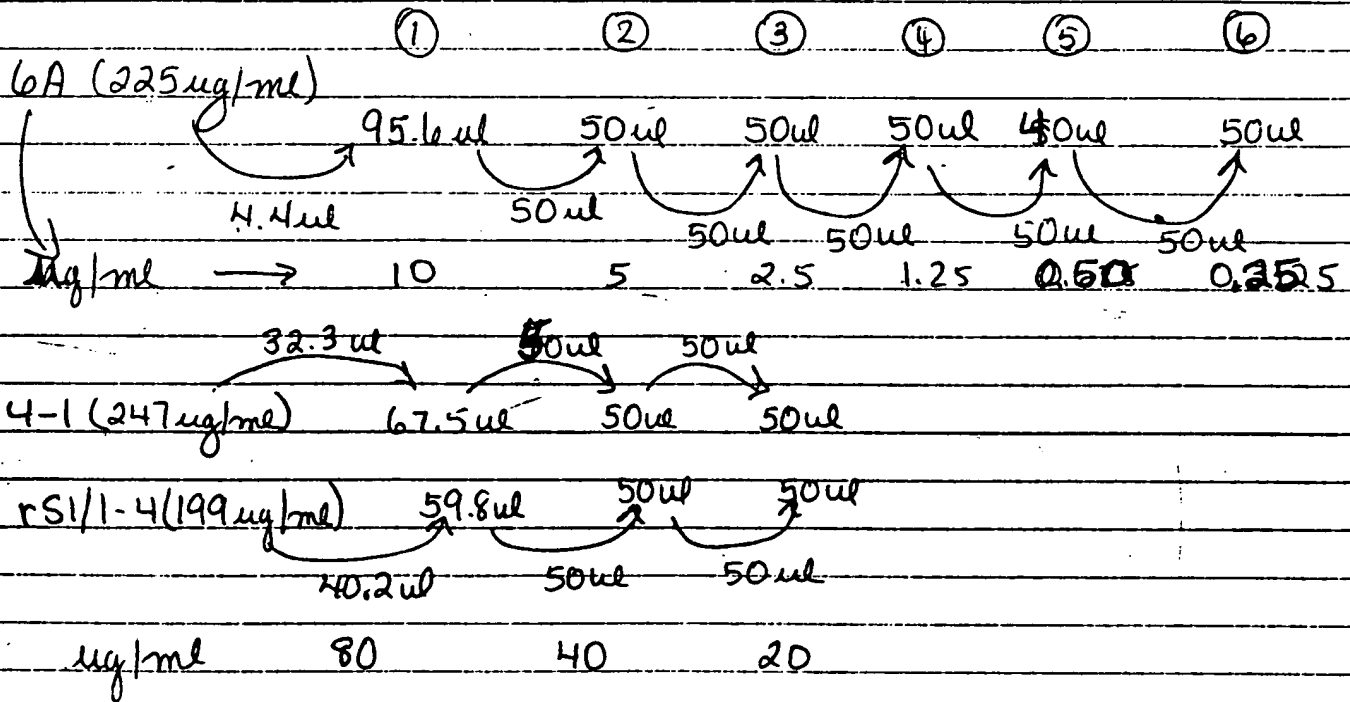 ① ② ③ ④ ⑤ ⑥
6A (225ug/ml)
95.6ul 50ul 50ul 50ul 50ul
4.4ul 50ul 50ul 50ul 50ul 50ul
ug/ml → 10 5 2.5 1.25
32.3 ul 50ul 50ul
4-1 (247ug/ml) 67.5ul 50ul 50ul
rS1/1-4(199ug/ml) 59.8ul 50ul 50ul
40.2ul 50ul 50ul
ug/ml 80 40 20